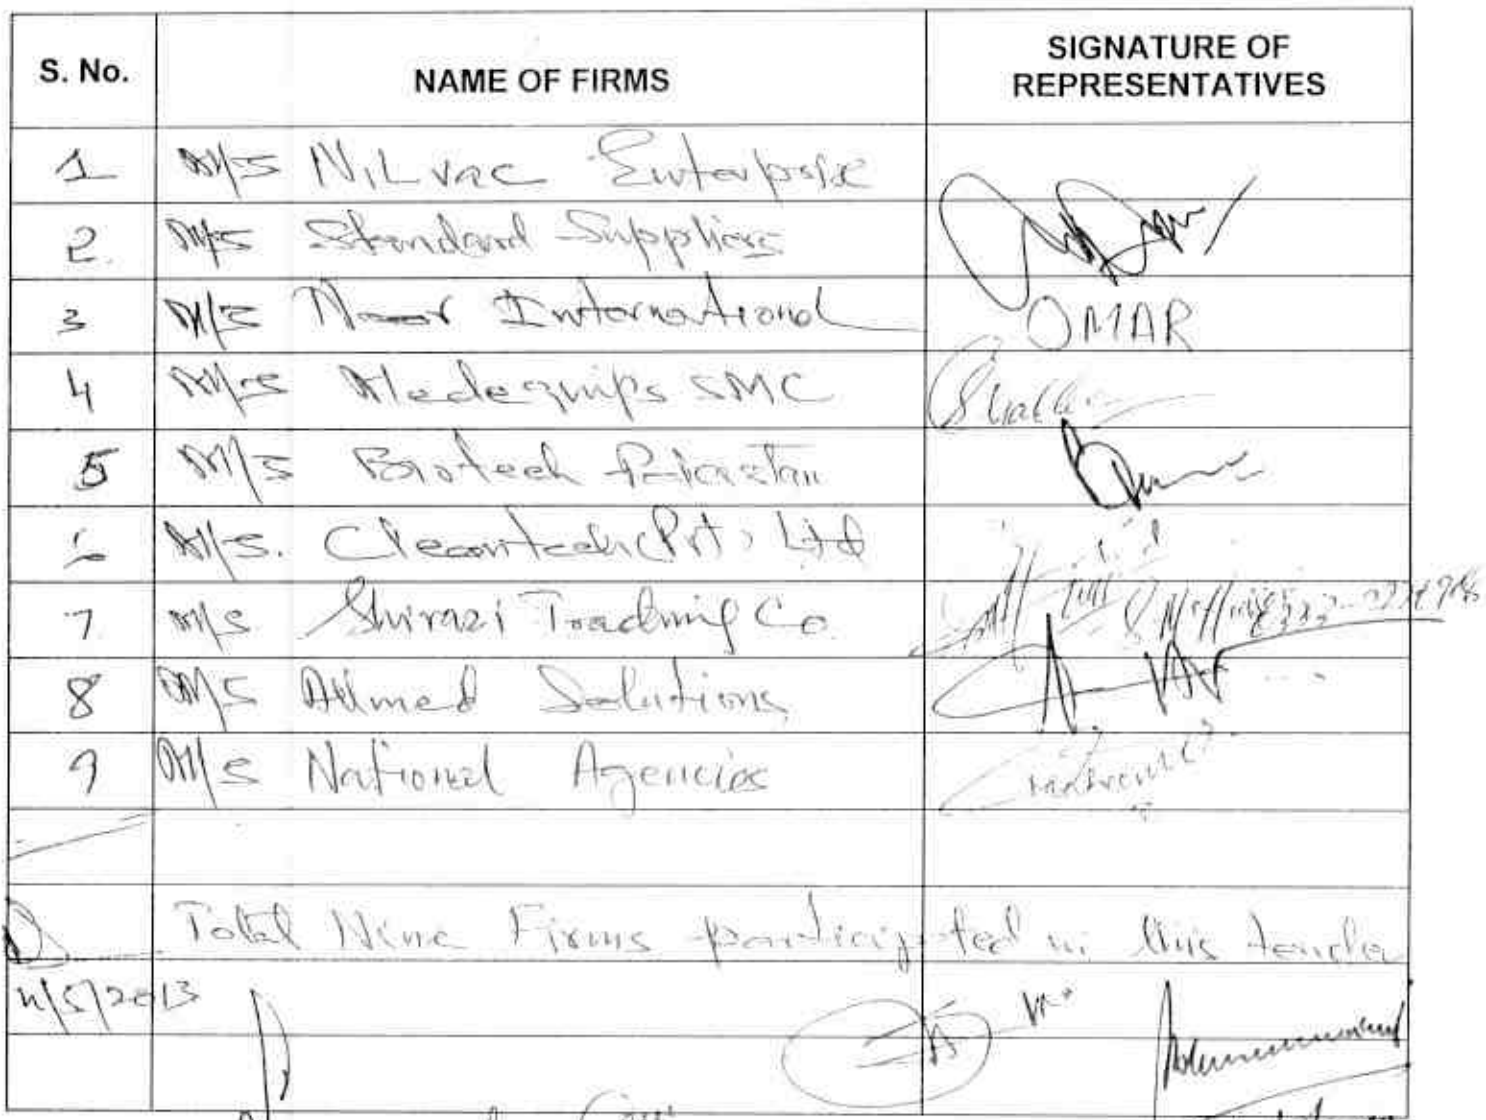 S. No. NAME OF FIRMS SIGNATURE OF REPRESENTATIVES
1 M/S NiLvac Enterprise
2. M/S Standard Suppliers
3 M/S Noor International OMAR
4 M/S Medequips SMC
5 M/S Biotech Pakistan
6 M/S. Cleantech (Pvt) Ltd
7 M/S Shirazi Trading Co
8 M/S Ahmed Solutions
9 M/S National Agencies
Total Nine Firms participated in this tender
/5/2013